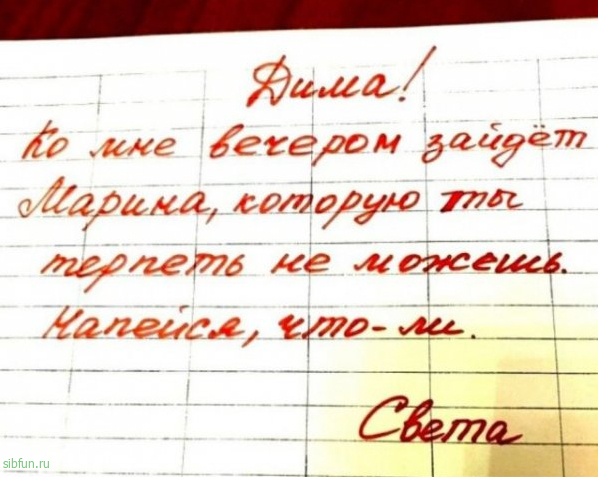 Дима!
Ко мне вечером зайдёт
Марина, которую ты
терпеть не можешь.
Напейся, что-ли.
Света
sibfun.ru